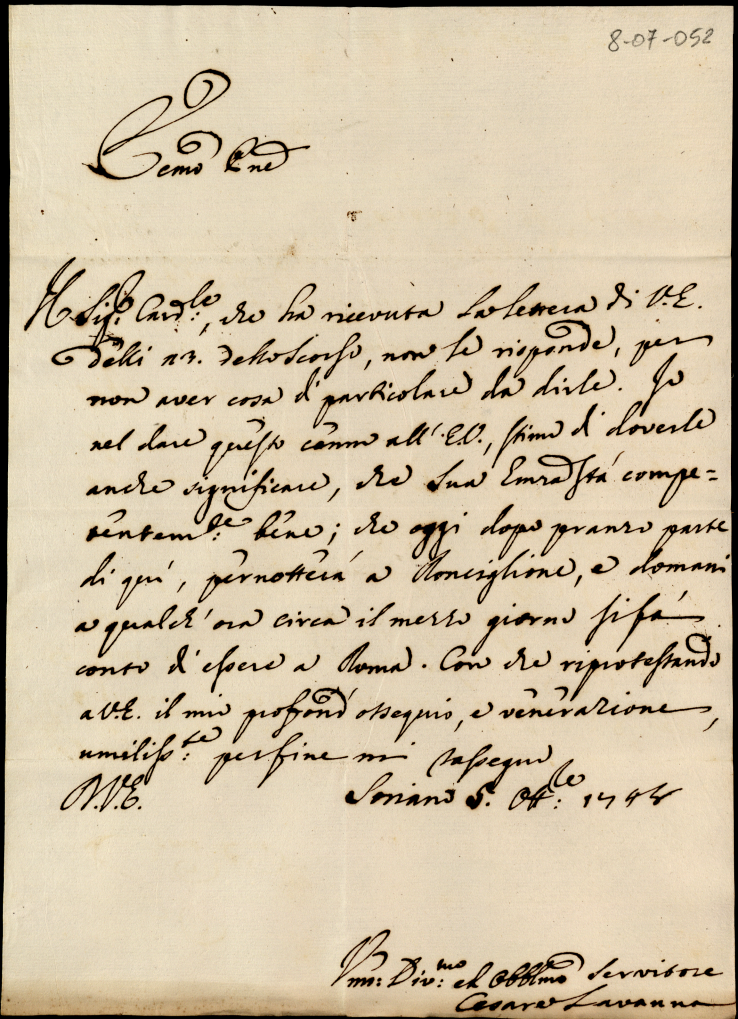 8-07-052
Eccmo Pne
Il Sig.r Card.le, che ha ricevuta la lettera di V.E.
delli 23. dello scorso, non le risponde, per
non aver cosa di particolare da dirle. Io
nel dare questo cenno all'E.V., stimo di doverle
anche significare, che Sua Emza stà compe=
tentem.te bene; che oggi dopo pranzo parte
di quì, pernotterà a Ronciglione, e domani
a qualch'ora circa il mezzo giorno si fà
conto d'essere a Roma. Con che riprotestando
a V.E. il mio profond' ossequio, e venerazione,
umiliss.te per fine mi rassegno
D.V.E. Soriano 5. Ott.le
Vm: Div.mo ed Obblmo Servitore
Cesare Lavanna